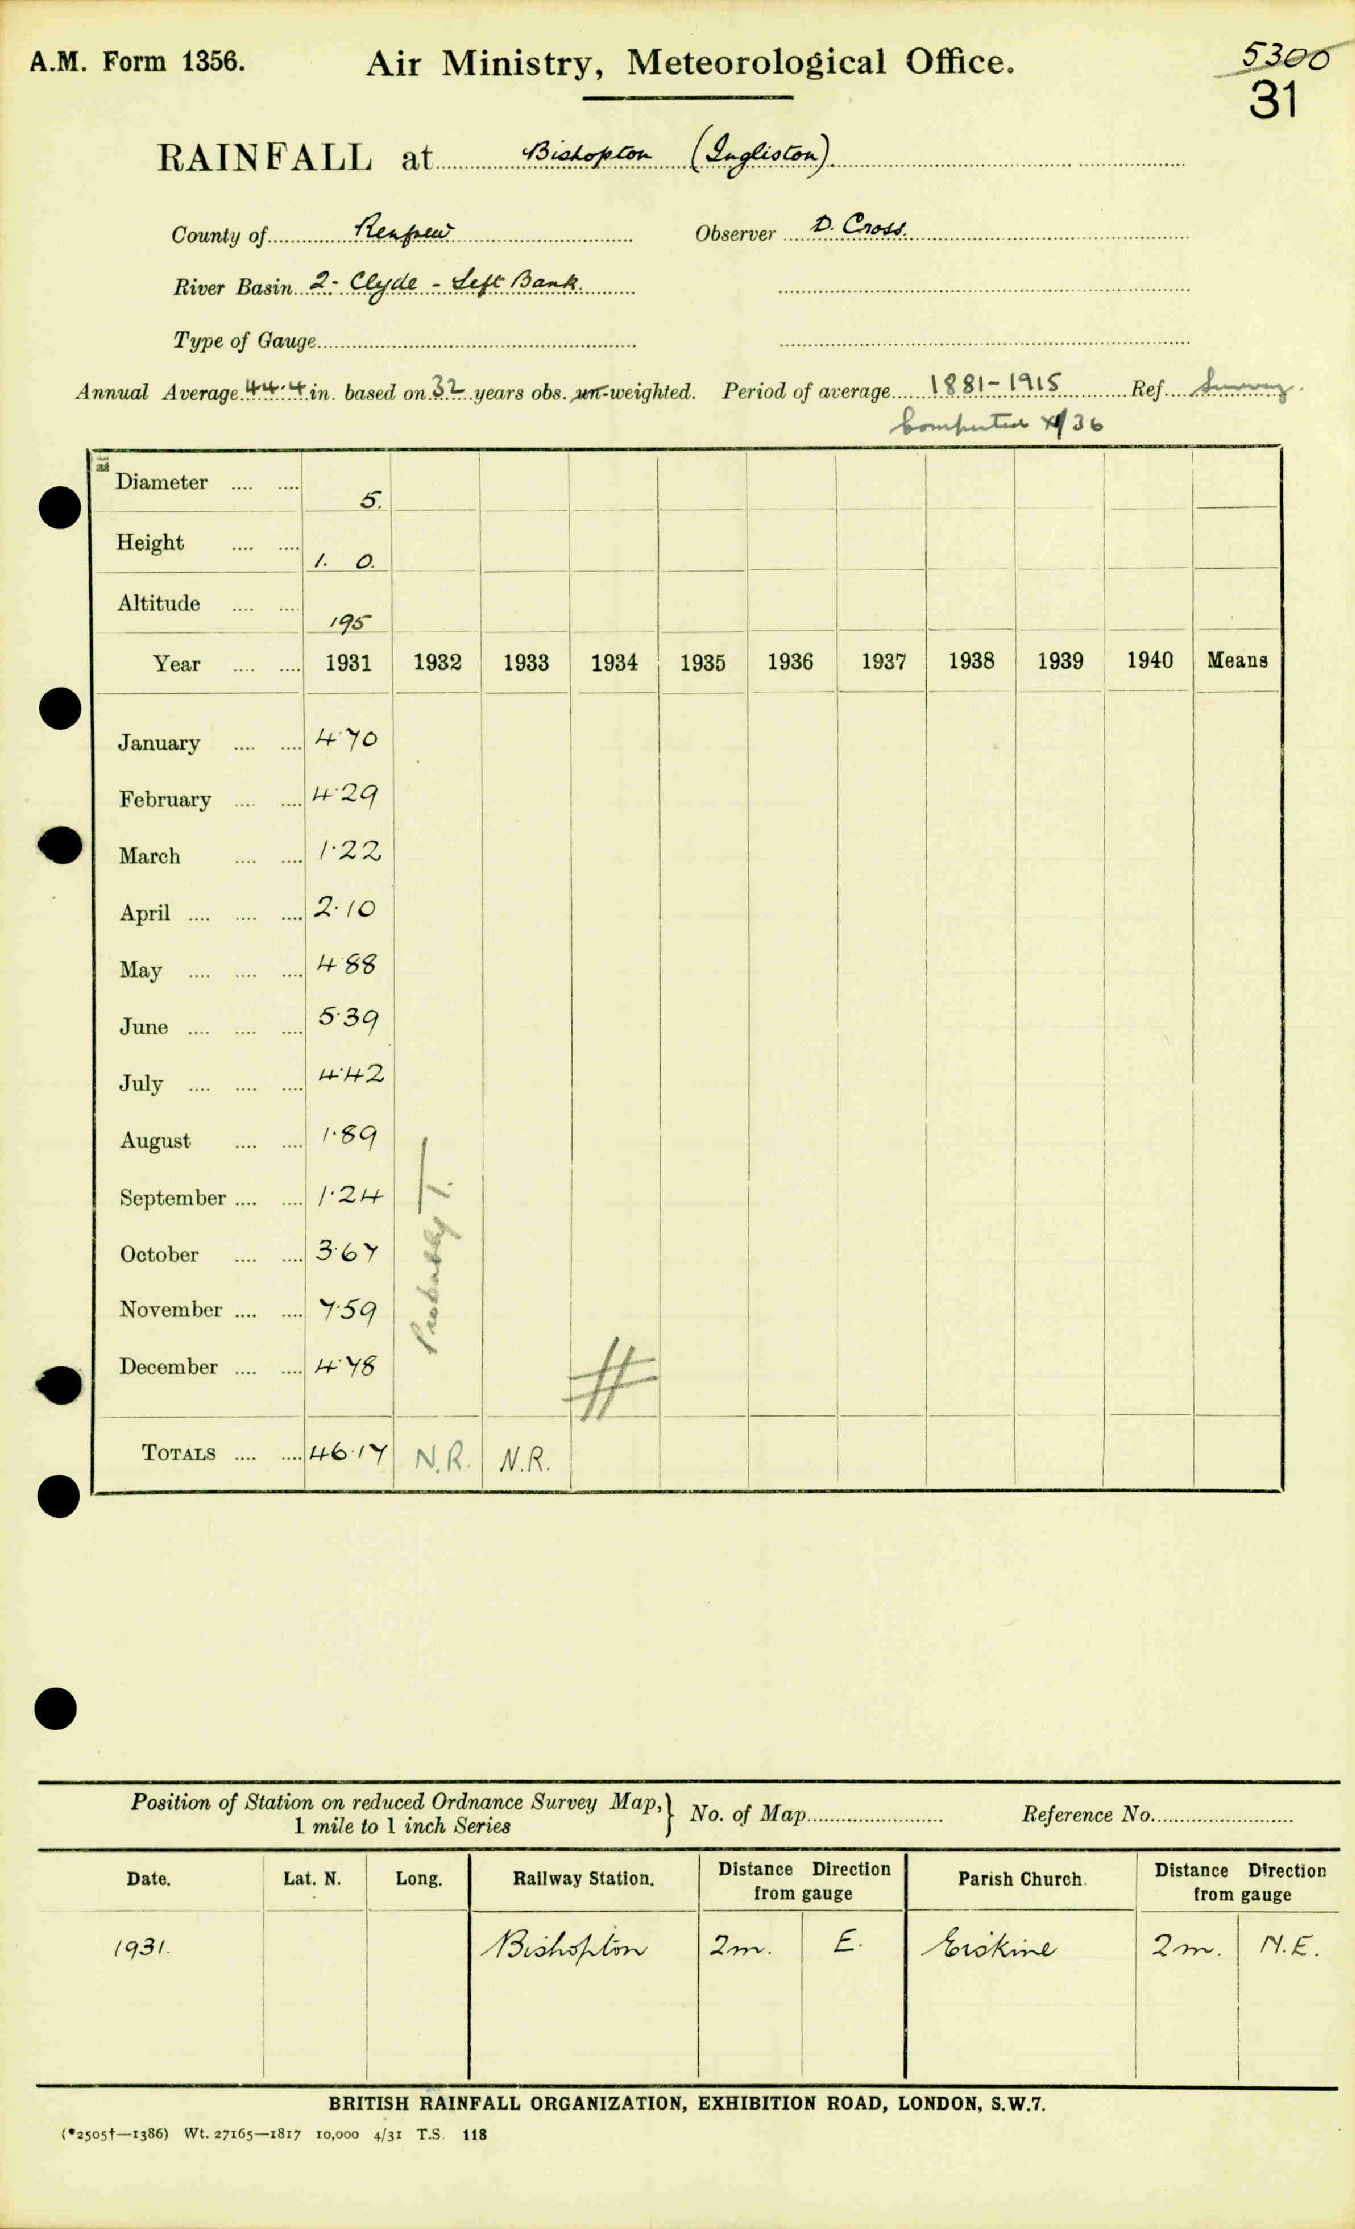 A.M. Form 1356. Air Ministry, Meteorological Office. 5300
31
RAINFALL at Bishopton (Ingliston)
County of Renfrew Observer D. Cross.
River Basin 2 - Clyde - Left Bank.
Type of Gauge
Annual Average 44.4 in. based on 32 years obs. un-weighted. Period of average 1881-1915 Ref. Survey.
Computed XI/36
Diameter 5.
Height 1. 0.
Altitude 195
Year 1931 1932 1933 1934 1935 1936 1937 1938 1939 1940 Means
January 4.70
February 4.29
March 1.22
April 2.10
May 4.88
June 5.39
July 4.42
August 1.89
September 1.24
October 3.67
November 7.59
December 4.78
Probably T.
TOTALS 46.17 N.R. N.R.
Position of Station on reduced Ordnance Survey Map, } No. of Map Reference No.
1 mile to 1 inch Series
Date. Lat. N. Long. Railway Station. Distance Direction from gauge Parish Church. Distance Direction from gauge
1931. Bishopton 2m. E. Erskine 2m. N.E.
BRITISH RAINFALL ORGANIZATION, EXHIBITION ROAD, LONDON, S.W.7.
(*2505†—1386) Wt. 27165—1817 10,000 4/31 T.S. 118